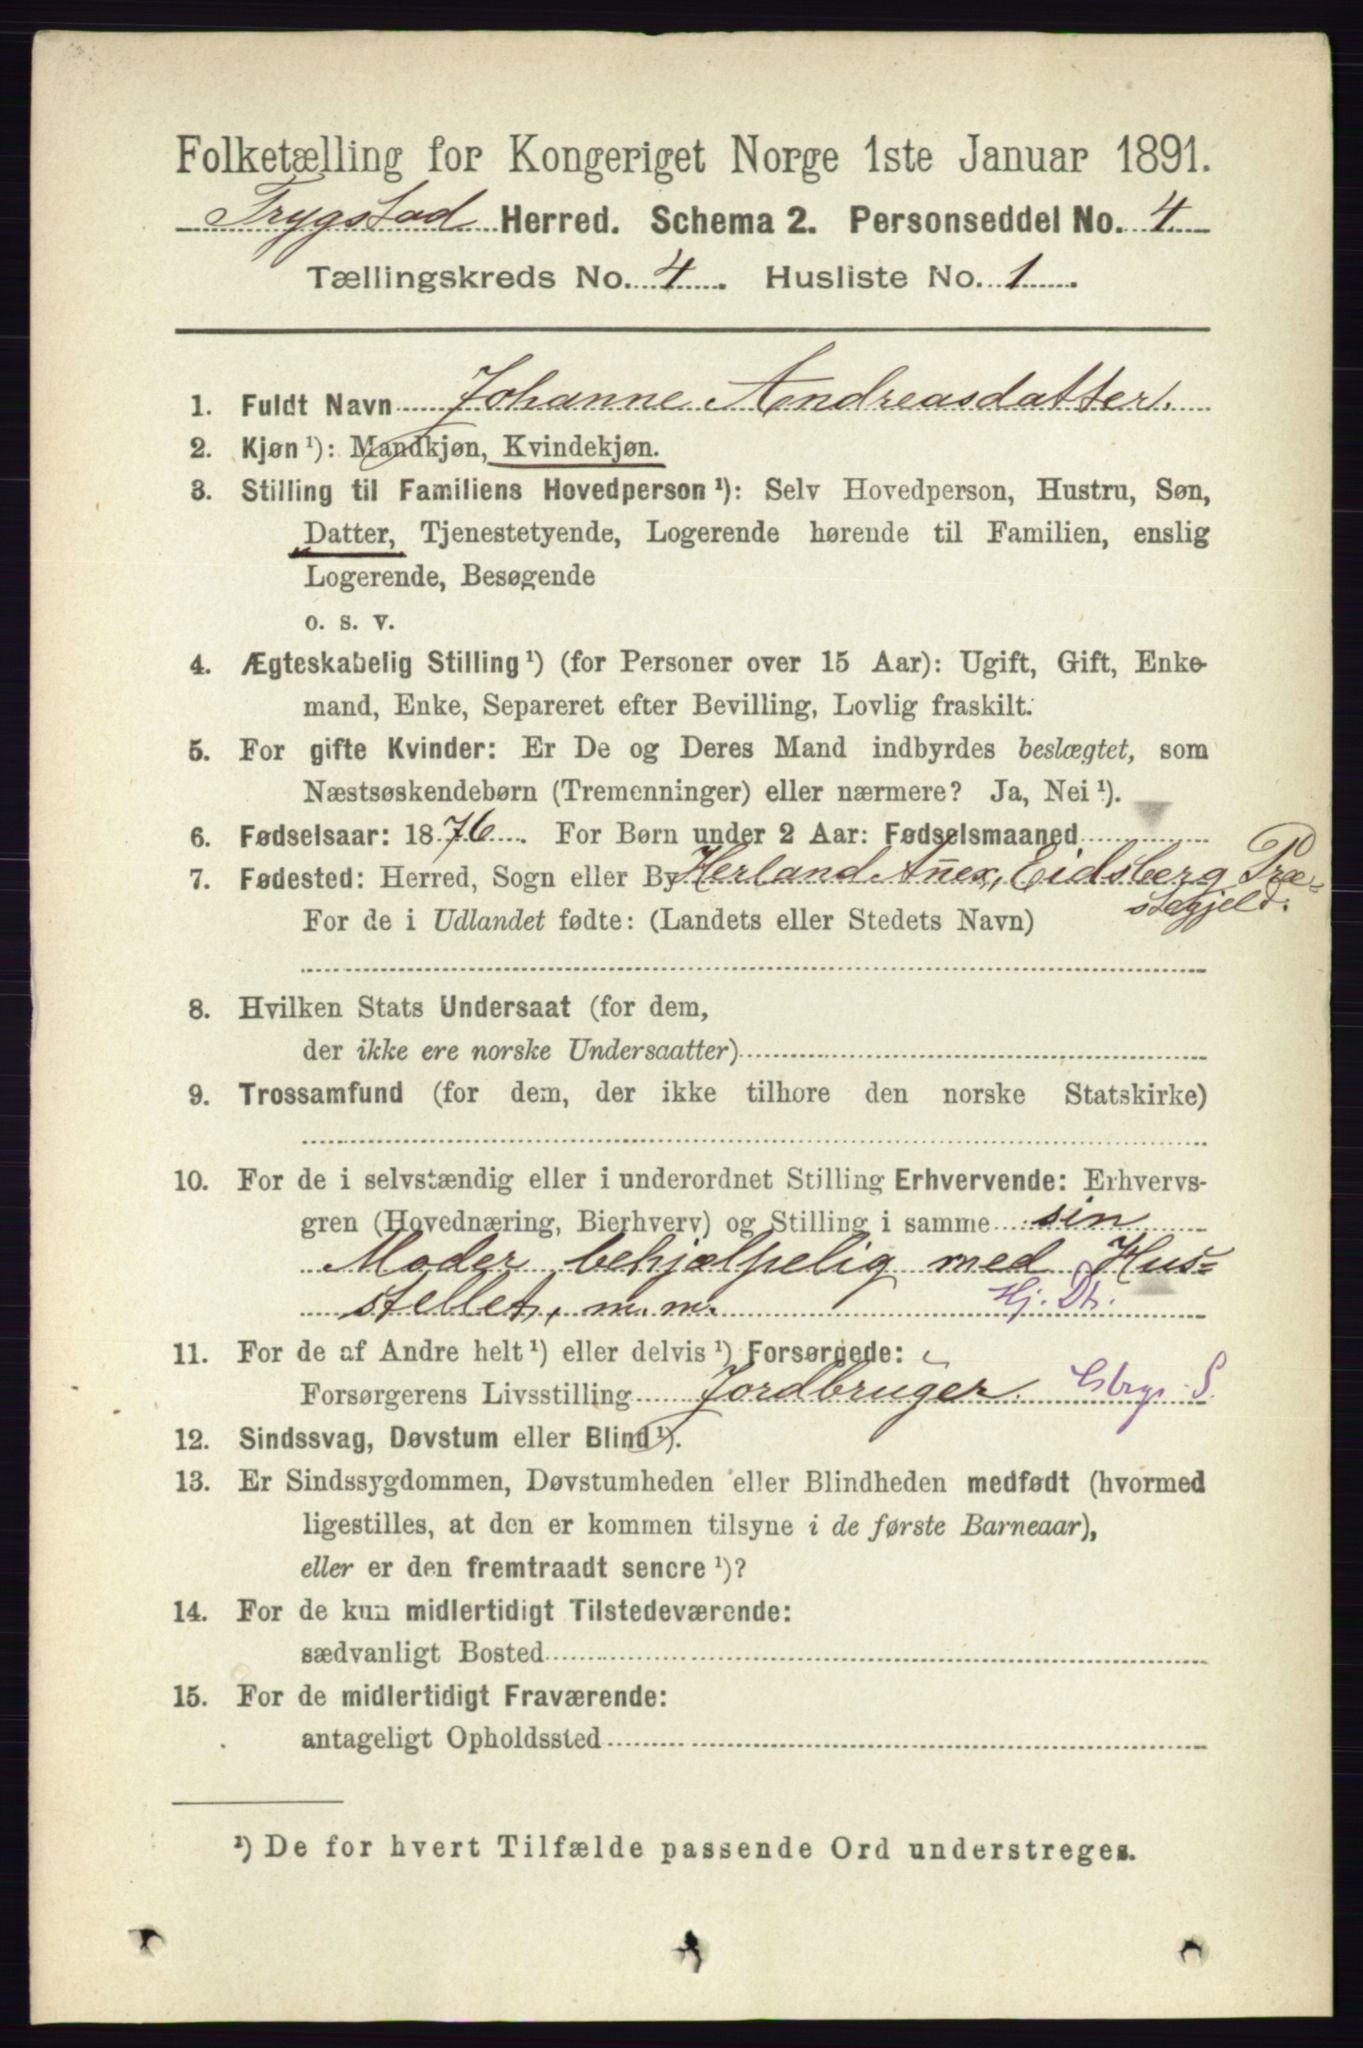 Folketælling for Kongeriget Norge 1ste Januar 1891.
Trygstad Herred. Schema 2. Personseddel No. 4
Tællingskreds No. 4. Husliste No. 1.
1. Fuldt Navn Johanne Andreasdatter.
2. Kjøn ¹): Mandkjøn, Kvindekjøn.
3. Stilling til Familiens Hovedperson ¹): Selv Hovedperson, Hustru, Søn,
Datter, Tjenestetyende, Logerende hørende til Familien, enslig
Logerende, Besøgende
o. s. v.
4. Ægteskabelig Stilling ¹) (for Personer over 15 Aar): Ugift, Gift, Enke-
mand, Enke, Separeret efter Bevilling, Lovlig fraskilt.
5. For gifte Kvinder: Er De og Deres Mand indbyrdes beslægtet, som
Næstsøskendebørn (Tremenninger) eller nærmere? Ja, Nei ¹).
6. Fødselsaar: 1876. For Børn under 2 Aar: Fødselsmaaned
7. Fødested: Herred, Sogn eller By Herland Anex, Eidsberg Præ=
stegjeld.
For de i Udlandet fødte: (Landets eller Stedets Navn)
8. Hvilken Stats Undersaat (for dem,
der ikke ere norske Undersaatter)
9. Trossamfund (for dem, der ikke tilhøre den norske Statskirke)
10. For de i selvstændig eller i underordnet Stilling Erhvervende: Erhvervs-
gren (Hovednæring, Bierhverv) og Stilling i samme sin
Moder behjælpelig med Hus=
stellet, m. m. Hj. Dt.
11. For de af Andre helt ¹) eller delvis ¹) Forsørgede:
Forsørgerens Livsstilling Jordbruger. S.
12. Sindssvag, Døvstum eller Blind ¹).
13. Er Sindssygdommen, Døvstumheden eller Blindheden medfødt (hvormed
ligestilles, at den er kommen tilsyne i de første Barneaar),
eller er den fremtraadt senere ¹)?
14. For de kun midlertidigt Tilstedeværende:
sædvanligt Bosted
15. For de midlertidigt Fraværende:
antageligt Opholdssted
¹) De for hvert Tilfælde passende Ord understreges.